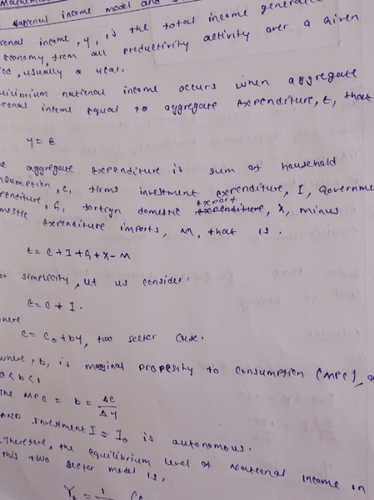 National income model and
ional income, y, is the total income generated
economy, from all productivity activity over a given
usually a year.
uilibrium national income occurs when aggregate
tional income equal to aggregate expenditure, E, that
y = E
aggregate expenditure is sum of household
nsumption, C, firms investment expenditure, I, Governme
penditure, G, foreign domestic export expenditure, X, minus
mestic expenditure imports, M, that is.
E = C + I + G + X - M
for simplicity, let us consider.
E = C + I.
where
C = C₀ + by, two sector case.
where, b, is marginal propersity to consumption (MPC),
0 < b < 1
The MPC = b = ΔC/Δy
AND investment I = I₀ is autonomous.
Therefore, the equilibrium level of National income in
this two sector model is,
Yₑ = 1